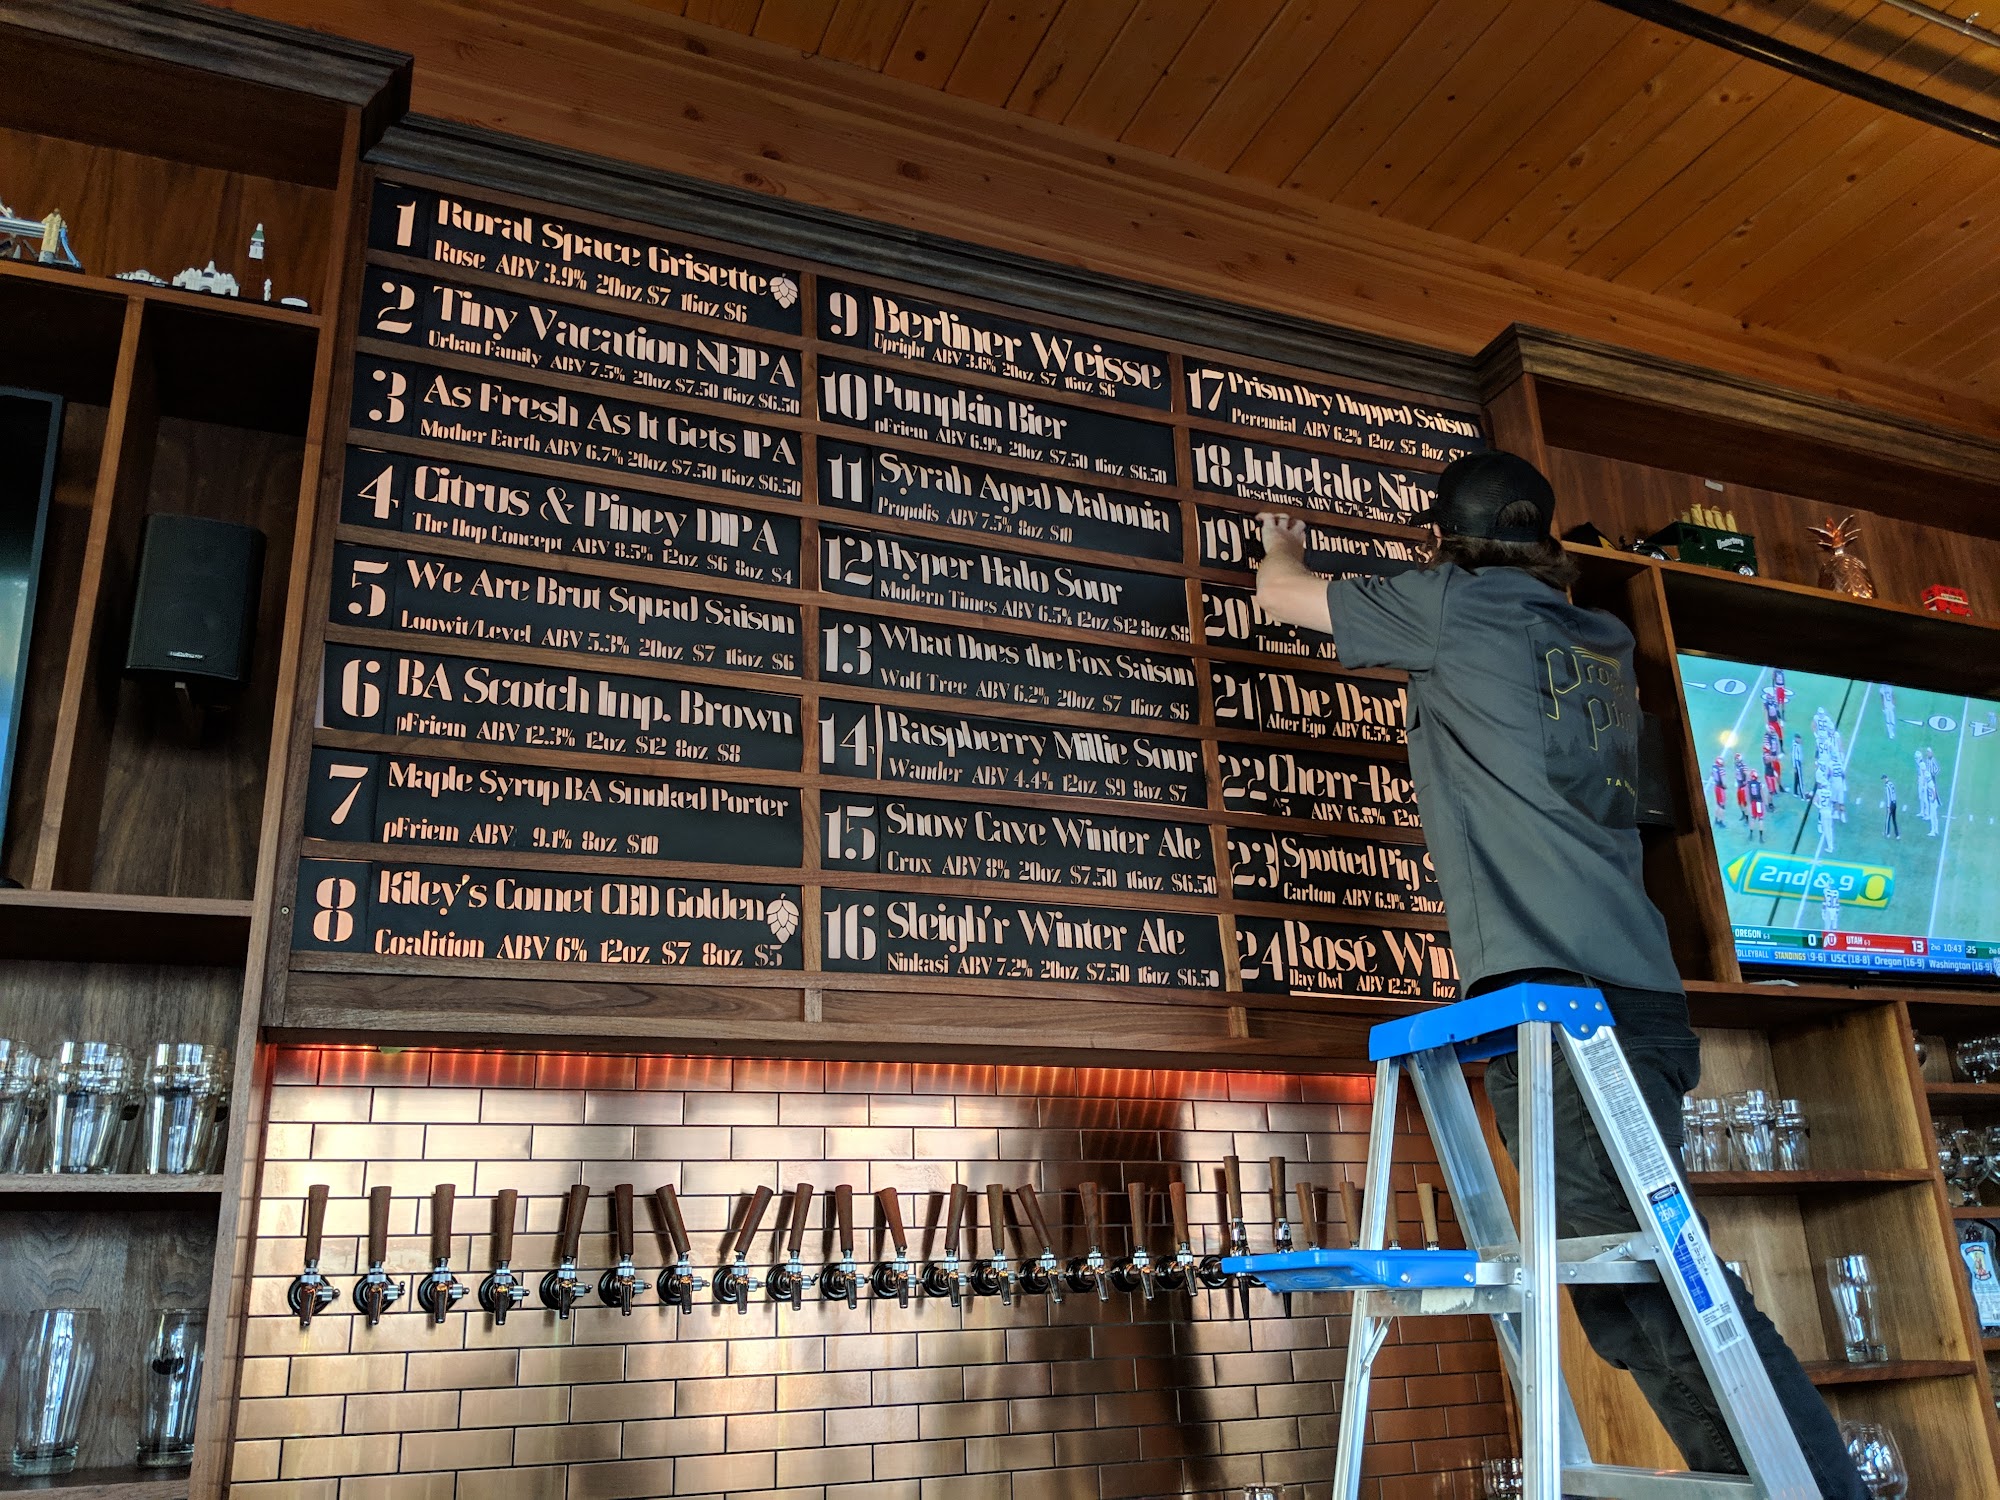 1 Rural Space Grisette
Ruse ABV 3.9% 20oz $7 16oz $6
2 Tiny Vacation NEIPA
Urban Family ABV 7.5% 20oz $7.50 16oz $6.50
3 As Fresh As It Gets IPA
Mother Earth ABV 6.7% 20oz $7.50 16oz $6.50
4 Citrus & Piney DIPA
The Hop Concept ABV 8.5% 12oz $6 8oz $4
5 We Are Brut Squad Saison
Loowit/Level ABV 5.3% 20oz $7 16oz $6
6 BA Scotch Imp. Brown
pFriem ABV 12.3% 12oz $12 8oz $8
7 Maple Syrup BA Smoked Porter
pFriem ABV 9.1% 8oz $10
8 Kiley's Comet CBD Golden
Coalition ABV 6% 12oz $7 8oz $5
9 Berliner Weisse
Upright ABV 3.6% 20oz $7 16oz $6
10 Pumpkin Bier
pFriem ABV 6.9% 20oz $7.50 16oz $6.50
11 Syrah Aged Mahonia
Propolis ABV 7.5% 8oz $10
12 Hyper Halo Sour
Modern Times ABV 6.5% 12oz $12 8oz $8
13 What Does the Fox Saison
Wolf Tree ABV 6.2% 20oz $7 16oz $6
14 Raspberry Millie Sour
Wander ABV 4.4% 12oz $9 8oz $7
15 Snow Cave Winter Ale
Crux ABV 8% 20oz $7.50 16oz $6.50
16 Sleigh'r Winter Ale
Ninkasi ABV 7.2% 20oz $7.50 16oz $6.50
17 Prism Dry Hopped Saison
Perennial ABV 6.2% 12oz $5 8oz
18 Jubelale Nitr
Deschutes ABV 6.7% 20oz
19 Butter Milk
20
Tomalo
21 The Dar
Alter Ego ABV 6.5%
22 Cherr-Be
^5 ABV 6.8% 12oz
23 Spotted Pig
Carlton ABV 6.9% 20oz
24 Rosé Win
Day Owl ABV 12.5% 6oz
2nd & 9
OREGON 0 UTAH 13 2nd 10:43 :25
VOLLEYBALL STANDINGS (9-6) USC (18-8) Oregon (16-9) Washington (16-9)